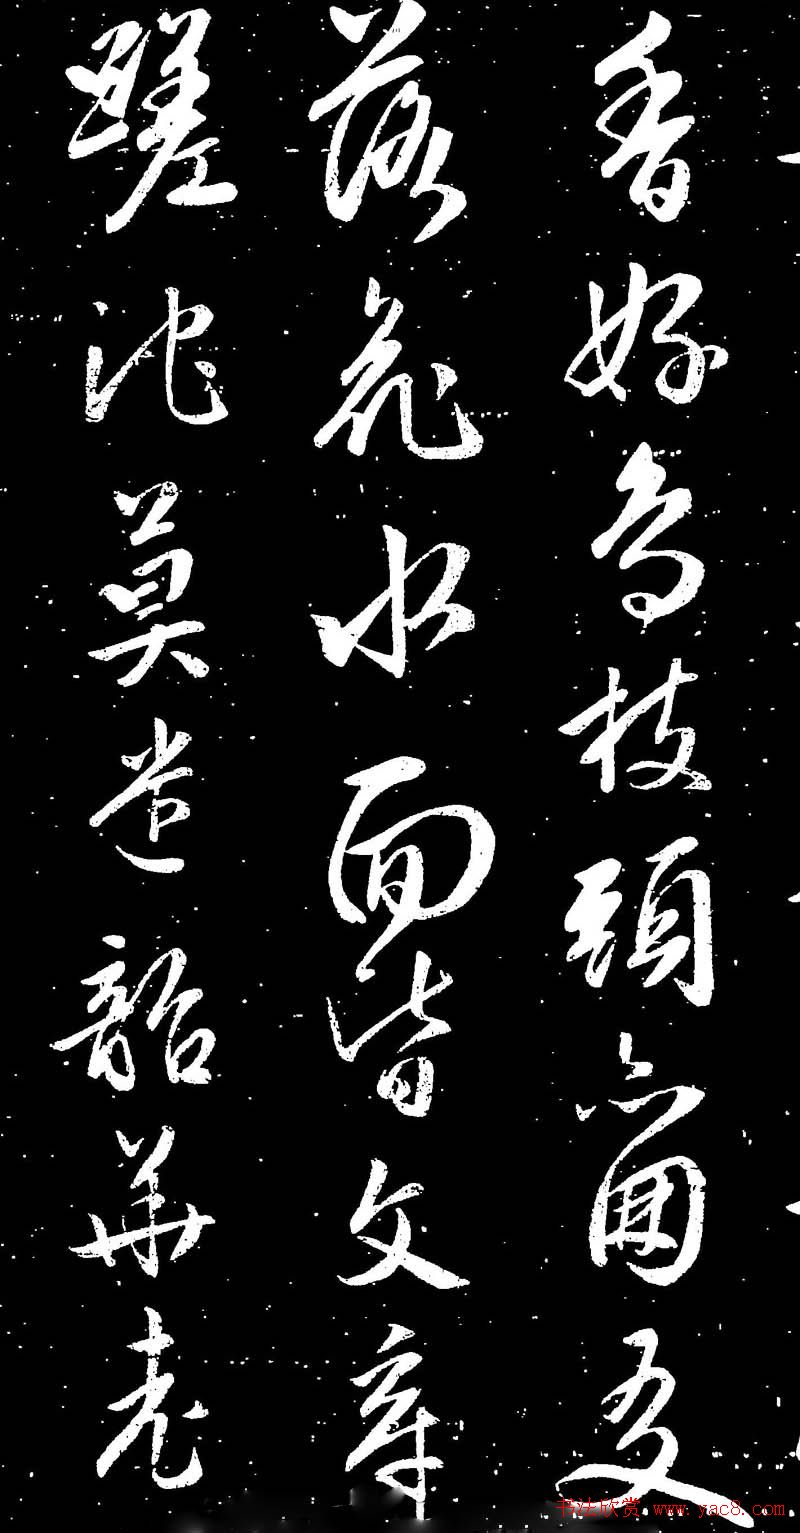 香好鳥枝頭亦朋友
落花水面皆文章
蹉跎莫遣韶華老
书法欣赏 www.yac8.com